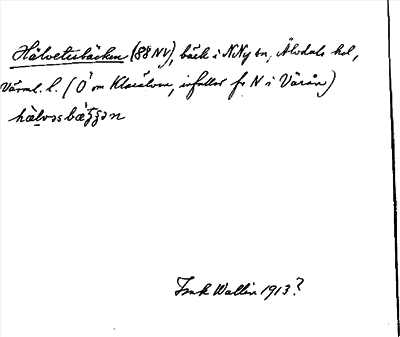 Hälvetesbäcken (88 NV), bäck i N Ny sn, Älvdals hd,
Värml. l. (Ö om Klarälven, infaller fr N i Värån)
hälvəsbäʒʒən
Ink Wallin 1913?